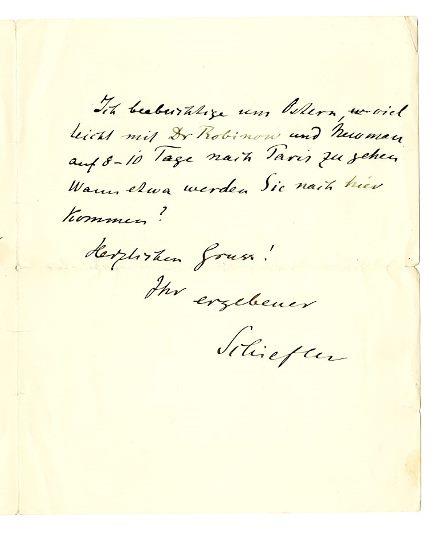 Ich beabsichtige um Ostern, viel
leicht mit Dr Robinow und Newman
auf 8-10 Tage nach Paris zu gehen
Wann etwa werden Sie nach hier
kommen?
Herzlichen Gruss!
Ihr ergebener
Schiefler